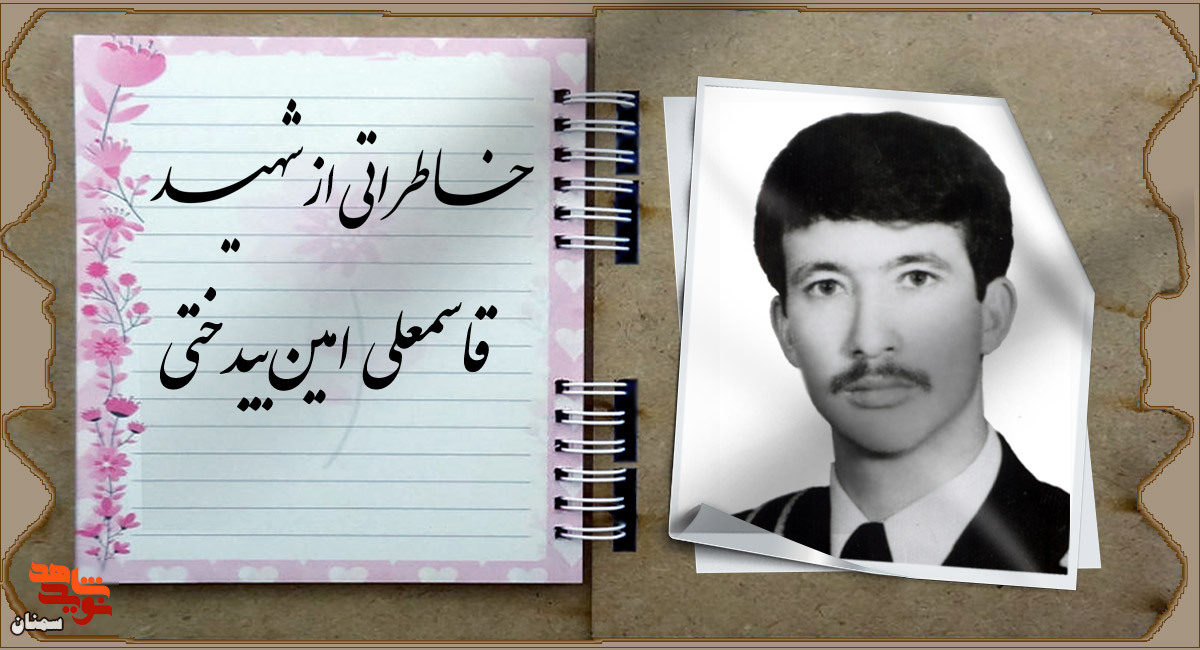 خاطراتی از شهید
قاسمعلی امین‌بیدختی
نوید شاهد
سمنان